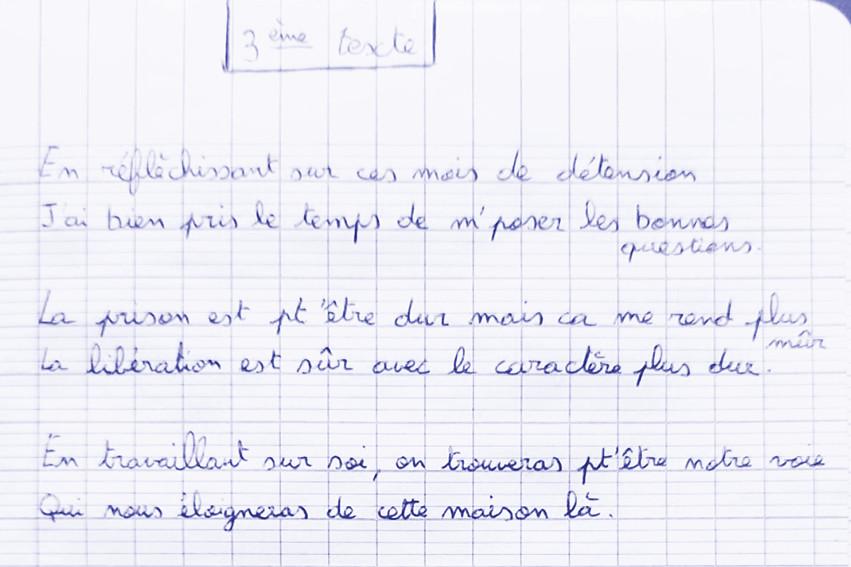 3ème texte
En réflèchissant sur ces mois de détension
J'ai bien pris le temps de m'poser les bonnes
questions.
La prison est pt'être dur mais ca me rend plus
mûr
La libération est sûr avec le caractère plus dur.
En travaillant sur soi, on trouveras pt'être notre voie
Qui nous éloigneras de cette maison là.